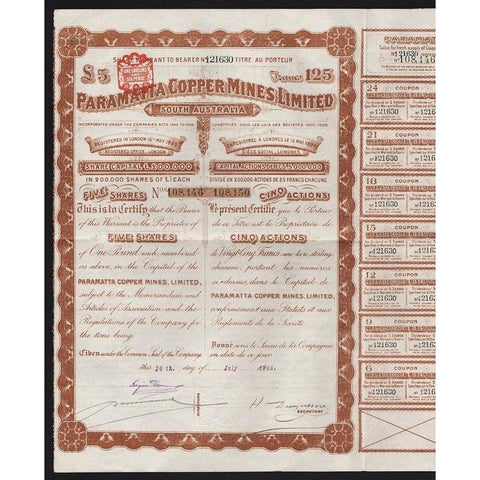 SHARE WARRANT TO BEARER Nº 121630 TITRE AU PORTEUR
£5
Francs 125
PARAMATTA COPPER MINES LIMITED
SOUTH AUSTRALIA
INCORPORATED UNDER THE COMPANIES ACTS 1862 TO 1898
CONSTITUÉE SOUS LES LOIS DES SOCIÉTÉS 1862 - 1898
REGISTERED IN LONDON
REGISTERED OFFICE, LONDON
ENREGISTRÉE À LONDRES LE
SIÈGE SOCIAL, LONDRES
SHARE CAPITAL £200,000
CAPITAL ACTIONS DE FRS. 5,000,000
IN 200,000 SHARES OF £1 EACH
DIVISÉ EN 200,000 ACTIONS DE 25 FRANCS CHACUNE
FIVE SHARES Nos 108,146 108,150 CINQ ACTIONS
This is to Certify that the Bearer
of this Warrant is the Proprietor of
FIVE SHARES
of One Pound each, numbered
as above, in the Capital of the
PARAMATTA COPPER MINES, LIMITED,
subject to the Memorandum and
Articles of Association and the
Regulations of the Company for
the time being.
Given under the Common Seal of the Company
Le présent Certifie que le Porteur
de ce Titre est le Propriétaire de
CINQ ACTIONS
de Vingt Cinq Francs, une livre sterling
chacune, portant les numéros
ci-dessus, dans le Capital de
PARAMATTA COPPER MINES, LIMITED,
conformément aux Statuts et aux
Règlements de la Société.
Donné sous le Sceau de la Compagnie
en date de ce jour.
this 20th. day of July
SECRETARY
PARAMATTA
121630
108,146
24 COUPON
121630
21 COUPON
121630
18 COUPON
121630
15 COUPON
121630
12 COUPON
121630
9 COUPON
121630
6 COUPON
121630